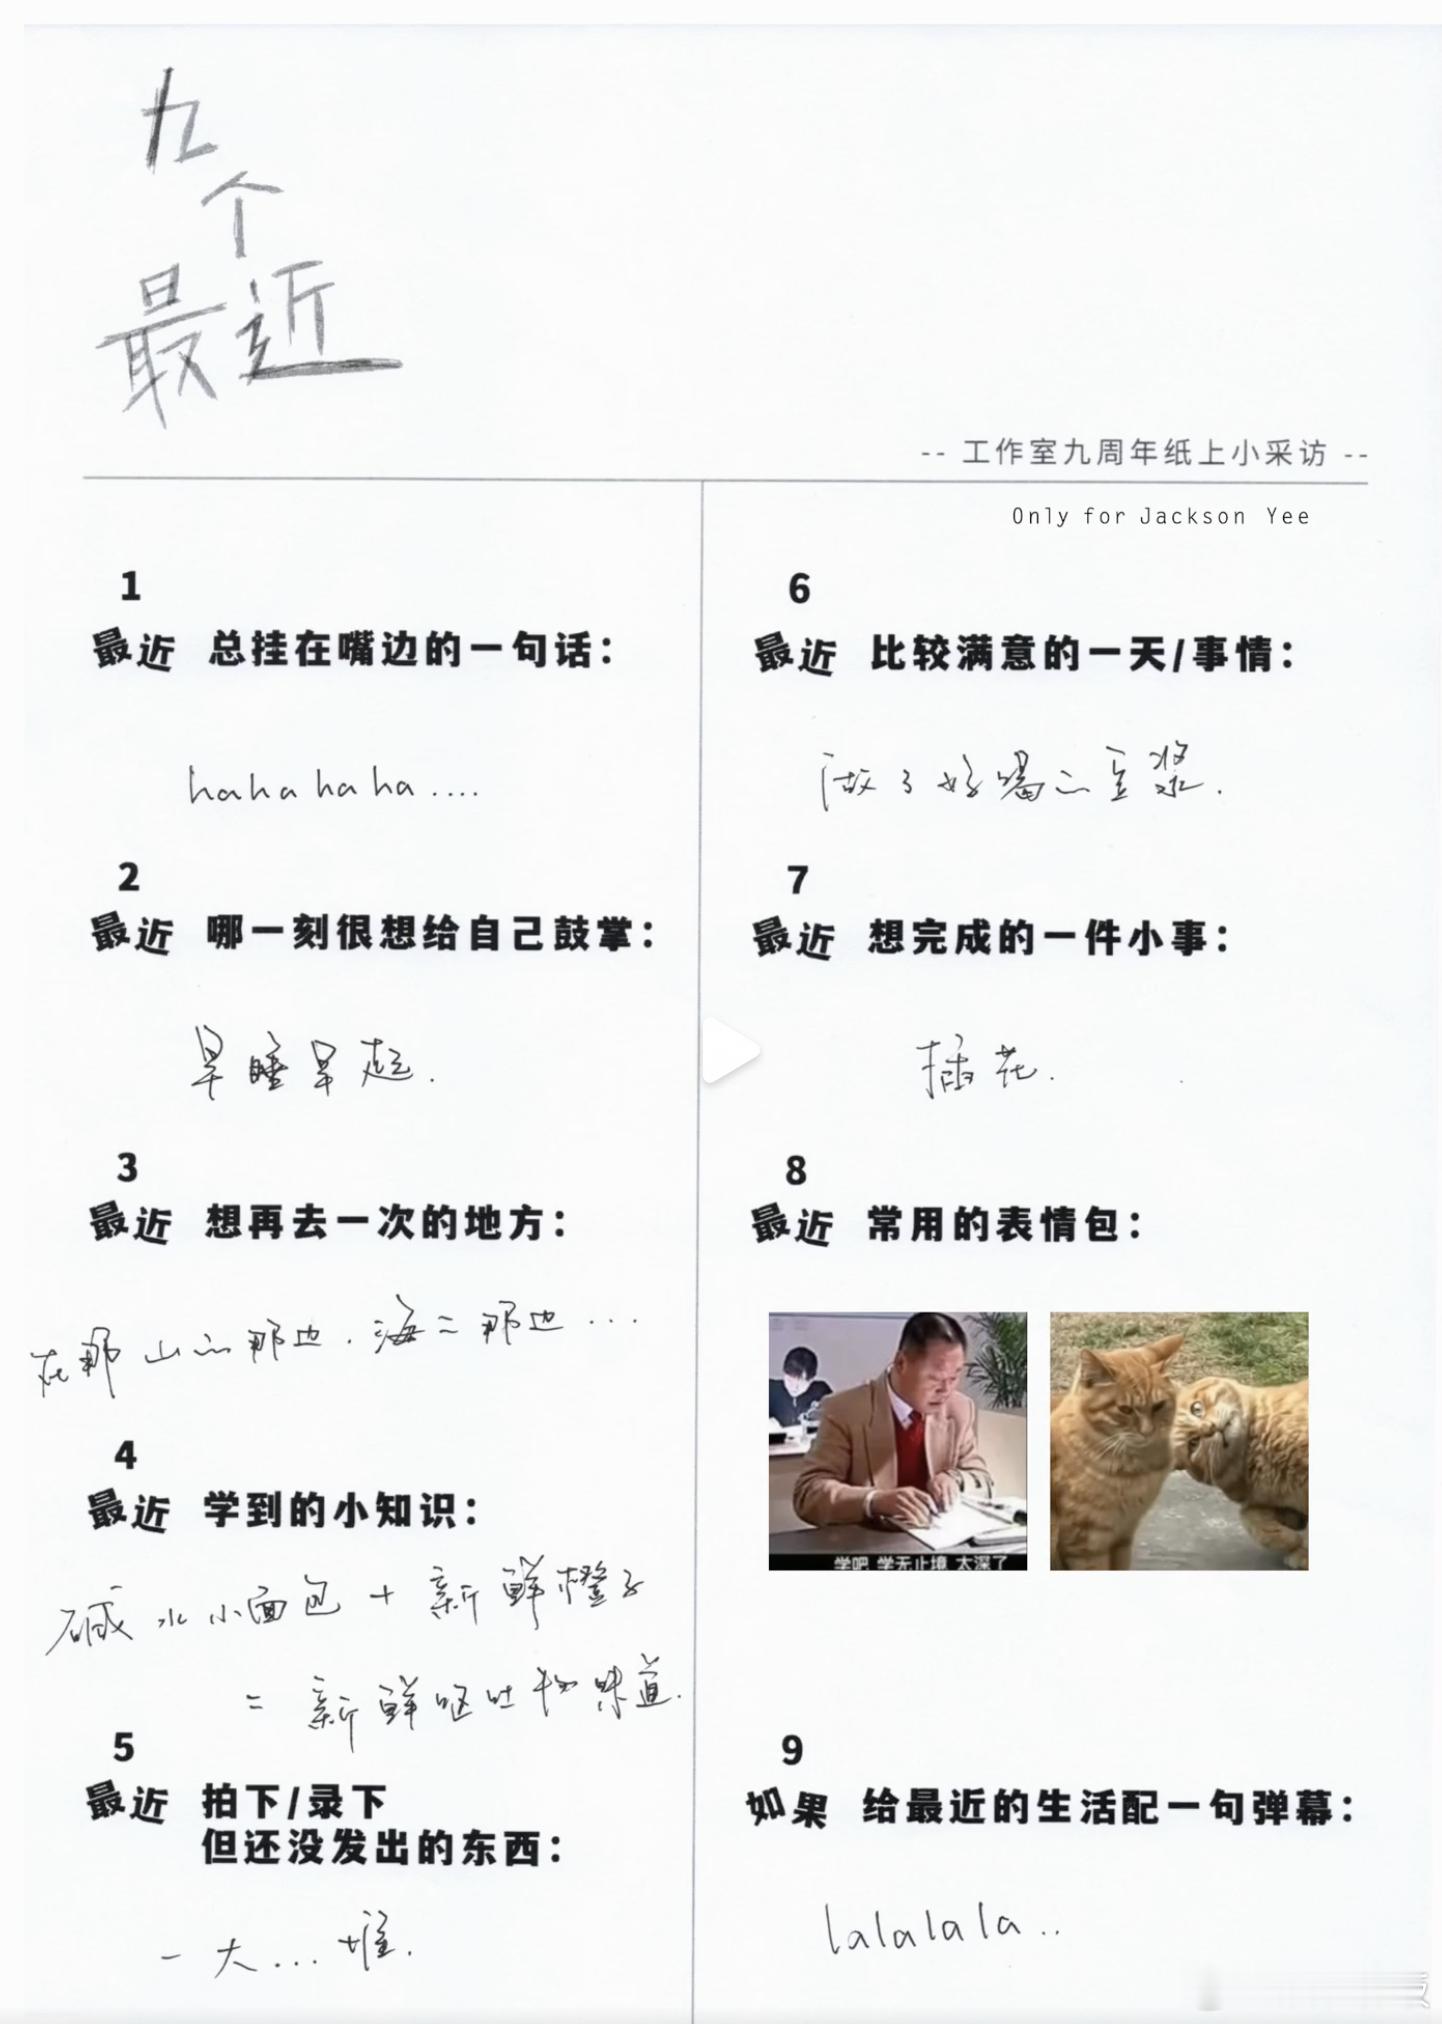 九
个
最近
-- 工作室九周年纸上小采访 --
Only for Jackson Yee
1
最近 总挂在嘴边的一句话：
hahahaha....
2
最近 哪一刻很想给自己鼓掌：
早睡早起.
3
最近 想再去一次的地方：
在那山的那边.海的那边...
4
最近 学到的小知识：
碱水小面包+新鲜橙子
=新鲜呕吐物味道.
5
最近 拍下/录下
但还没发出的东西：
一大...堆.
6
最近 比较满意的一天/事情：
做了好喝的豆浆.
7
最近 想完成的一件小事：
插花.
8
最近 常用的表情包：
学吧 学无止境 太深了
9
如果 给最近的生活配一句弹幕：
lalalala..